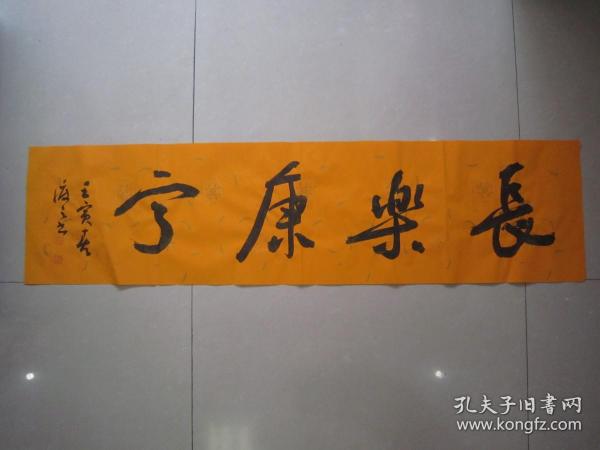 長樂康寧
壬寅春
孔夫子旧書网
www.kongfz.com